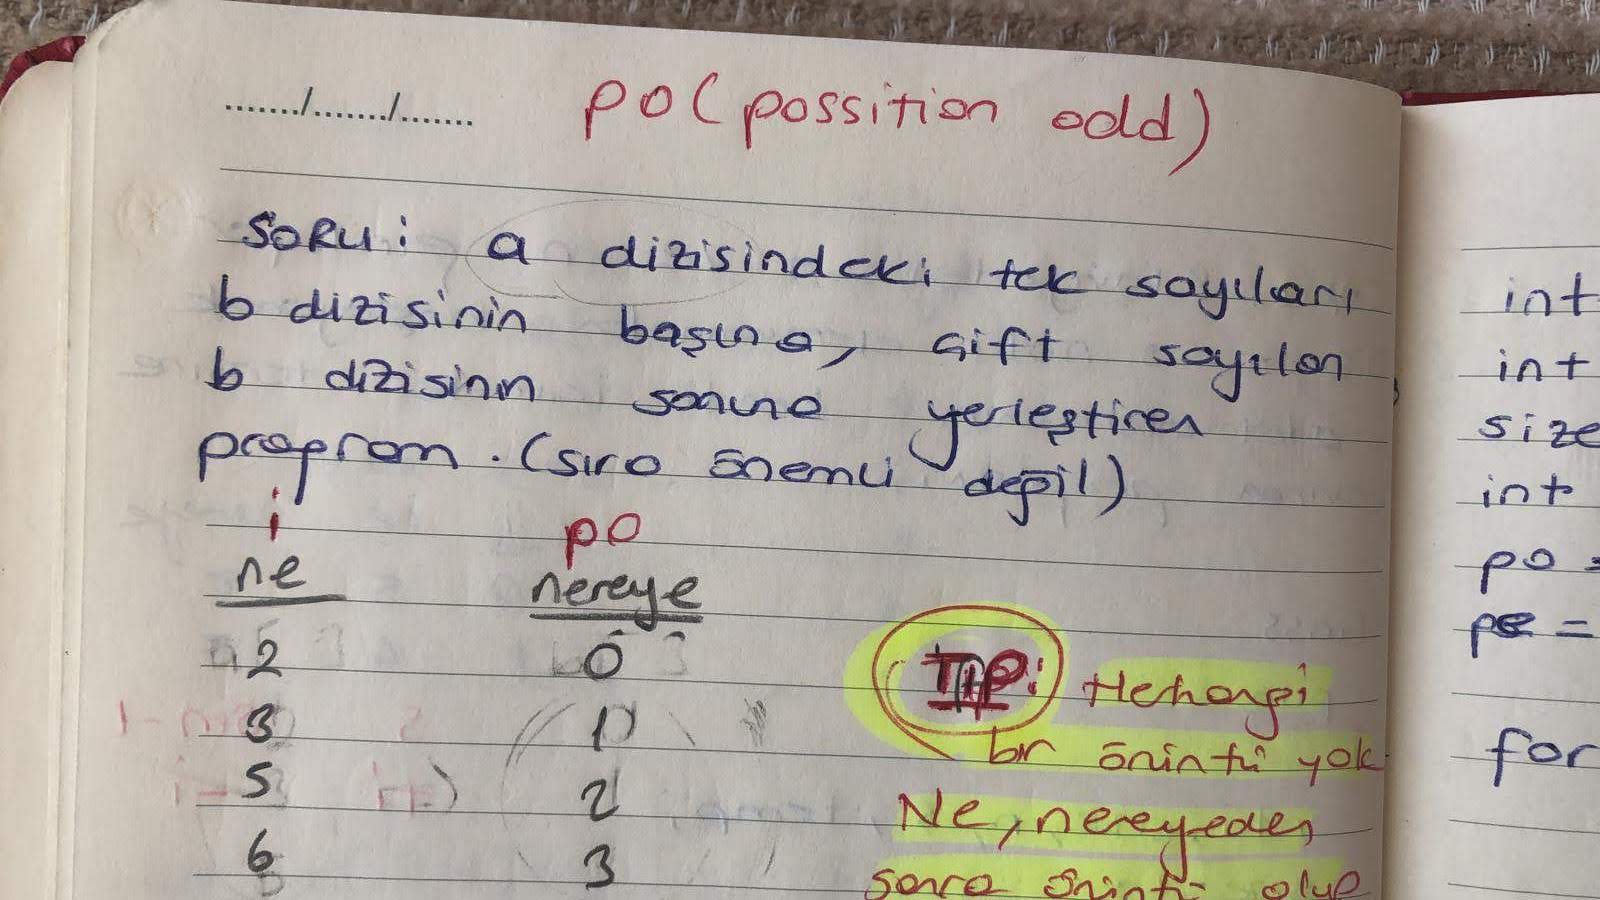 ......./......./.......
po (possition odd)
SORU: a dizisindeki tek sayıları
b dizisinin başına, çift sayıları
b dizisinin sonuna yerleştiren
program. (sıra önemli değil)
i po
ne nereye
2 0
3 1
5 2
6 3
TIP: Herhangi
bir örüntü yok
Ne, nereyeden
sonra örüntü olup
int
int
size
int
po =
pe =
for